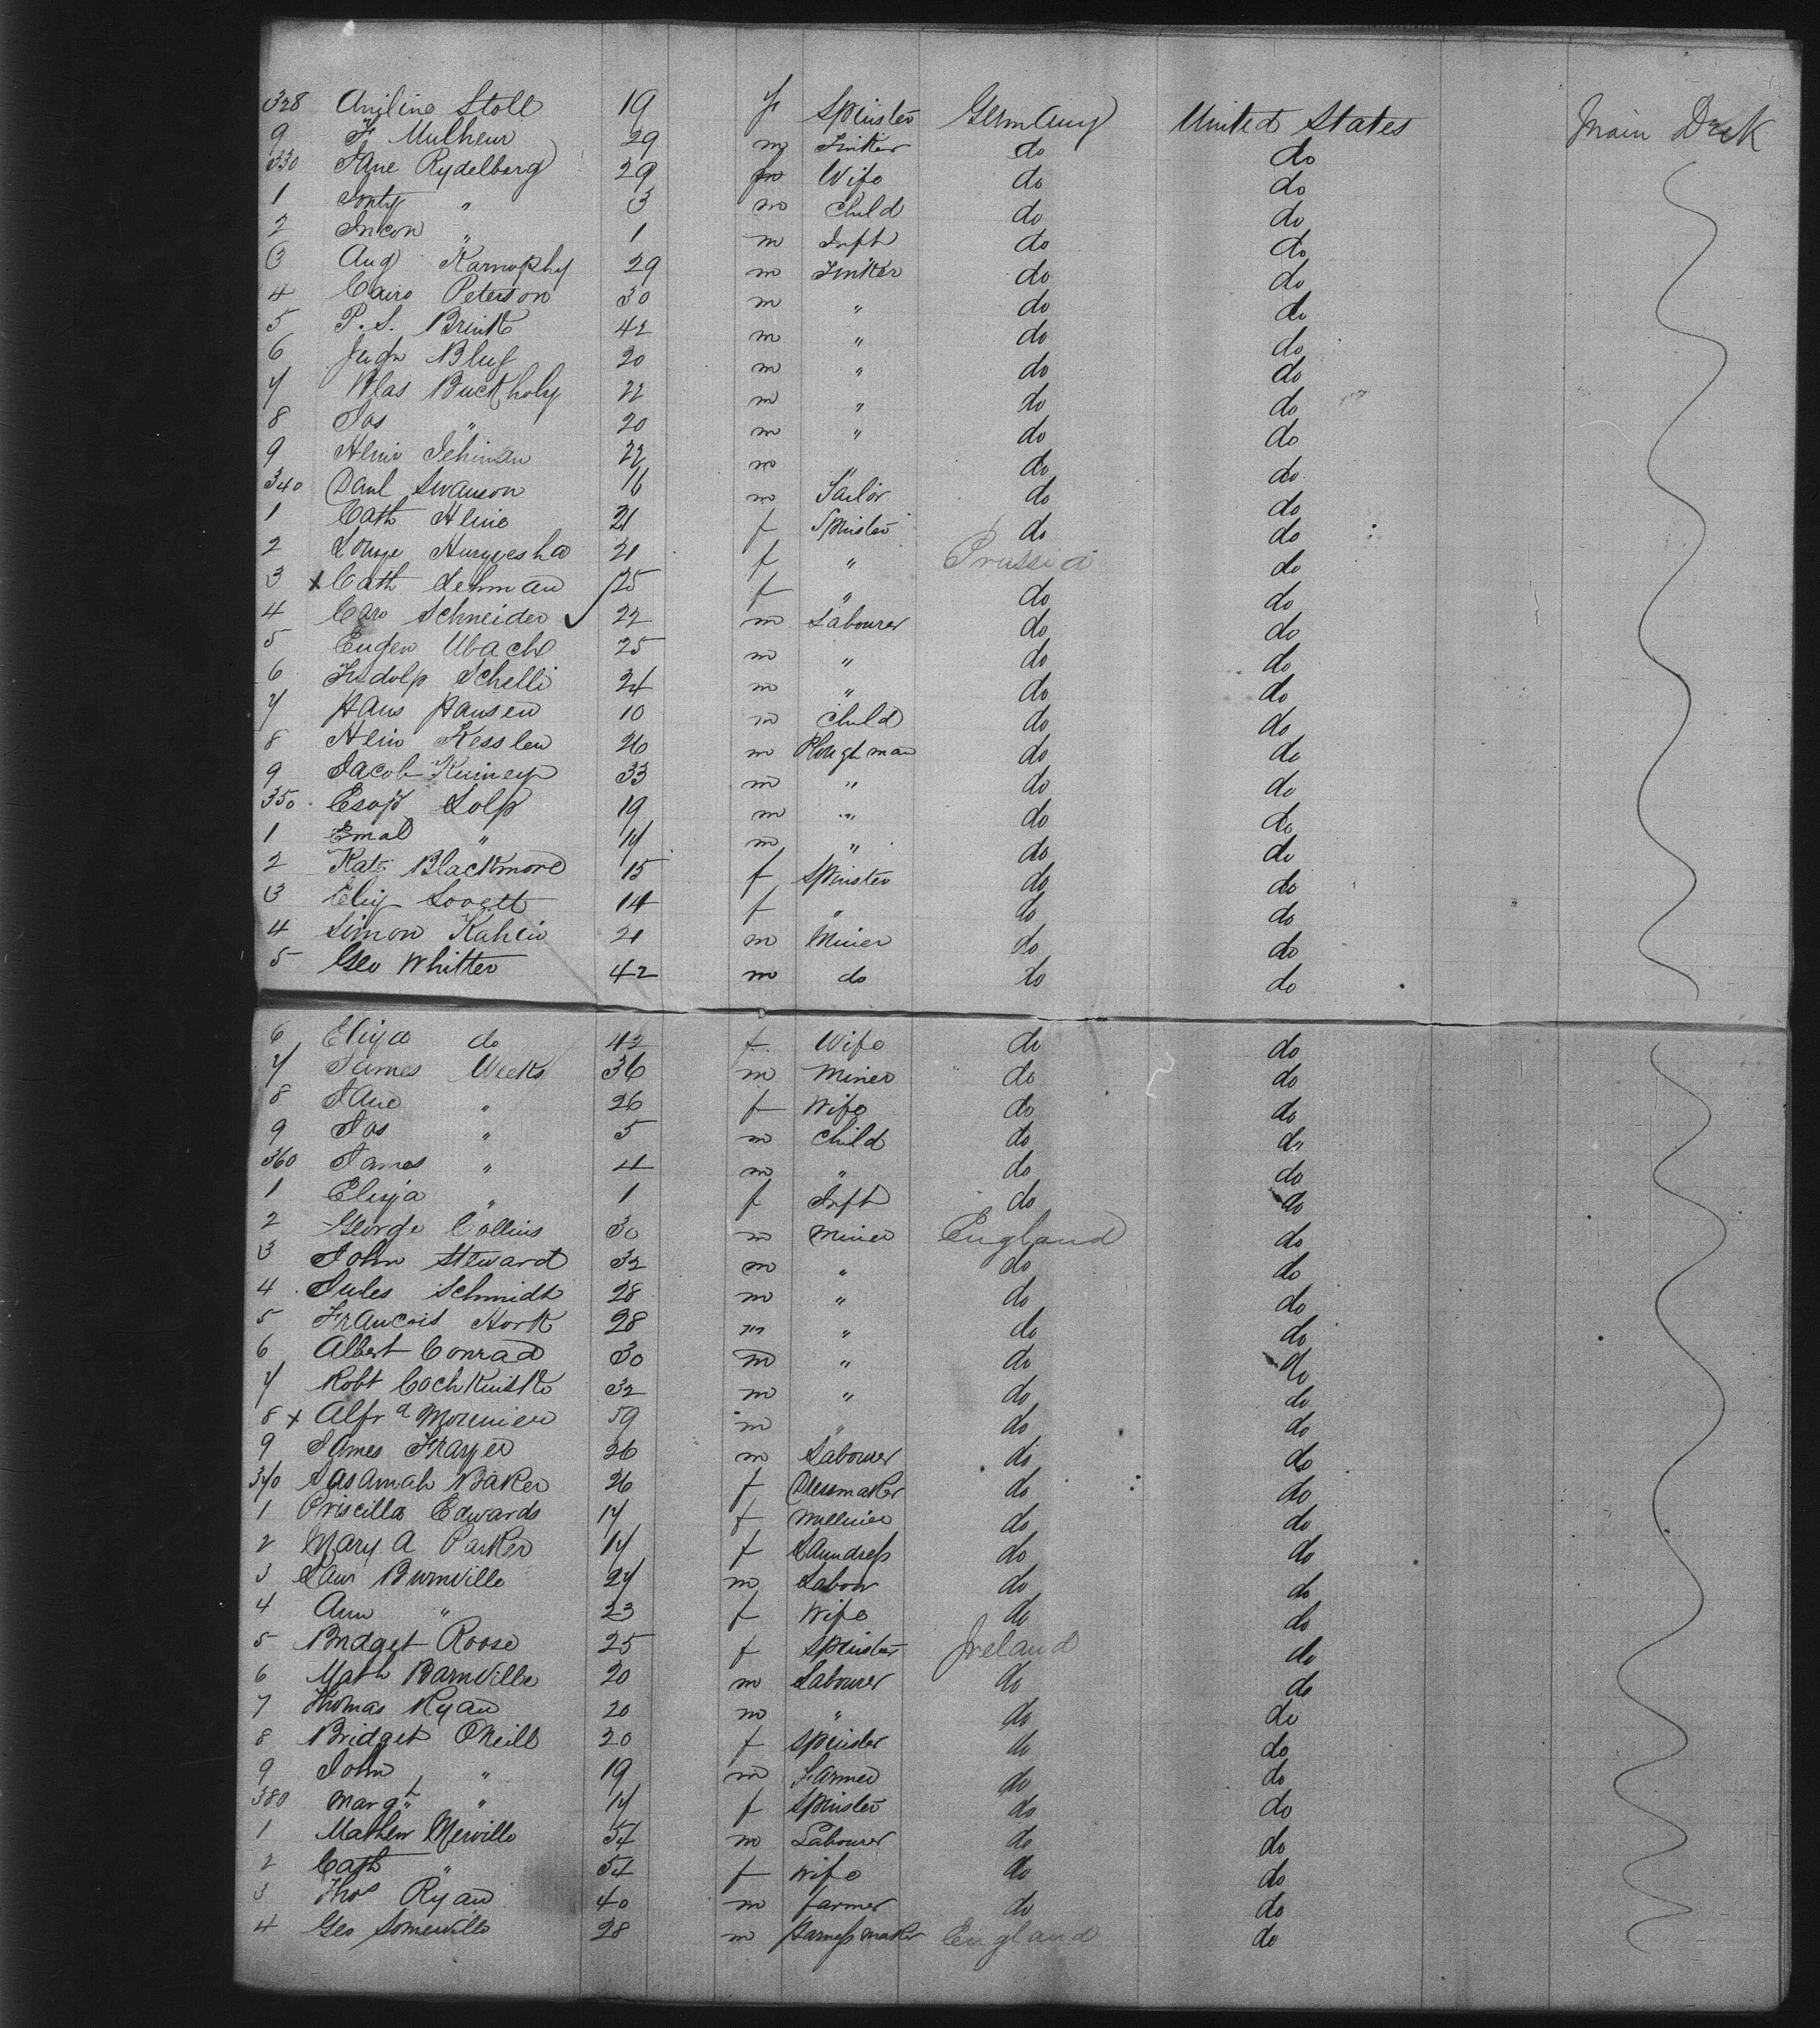 328 Aniline Stoll 19 f Spinster Germany United States Main Deck
9 F Mulheur 29 m Tinker do do
330 Jane Rydelberg 29 fm Wife do do
1 " 3 m Child do do
2 " 1 m Inft do do
3 Aug Karnophy 29 m Tinker do do
4 Cairo Peterson 30 m " do do
5 P. S. Brink 42 m " do do
6 Blug 20 m " do do
7 Blas Buckholy 22 m " do do
8 Jos " 20 m " do do
9 Hein Schinan 22 m " do do
340 Danl Swanson 16 m Sailor do do
1 Cath Heine 21 f Spinster do do
2 Louge 21 f " Prussia do
3 x Cath Lehman 25 f " do do
4 Caro Schneider ✓ 22 m Labourer do do
5 Eugen Ubach 25 m " do do
6 Fudolp Schelli 24 m " do do
7 Hans Hansen 10 m Child do do
8 Hein Kesslen 26 m Ploughman do do
9 Jacob Kuiney 33 m " do do
350 Esop Lolp 19 m " do do
1 Emal " 17 m " do do
2 Kate Blackmore 15 f Spinster do do
3 Eliz Lovett 14 f " do do
4 Simon Kahein 21 m Miner do do
5 Geo Whitter 42 m do do do
6 Eliza do 42 f Wife do do
7 James Weeks 36 m Miner do do
8 Jane " 26 f Wife do do
9 Jos " 5 m Child do do
360 James " 4 m " do do
1 Eliza " 1 f Inft do do
2 George Collins 30 m Miner England do
3 John Steward 32 m " do do
4 Jules Schmidt 28 m " do do
5 Francois Hork 28 m " do do
6 Albert Conrad 30 m " do do
7 Robt Cochkuisko 32 m " do do
8 x Alfrd Mournier 59 m " do do
9 James Frayer 26 m Labourer do do
370 Sasamah Baker 26 f Dressmaker do do
1 Priscilla Edwards 17 f Millinier do do
2 Mary A Parker 17 f Laundress do do
3 Laur Burnville 27 m Labour do do
4 Ann " 23 f Wife do do
5 Bridget Roose 25 f Spinster Ireland do
6 Math Barnville 20 m Labourer do do
7 Thomas Ryan 20 m " do do
8 Bridget ONeill 20 f Spinster do do
9 John " 19 m Farmer do do
380 Margt " 17 f Spinster do do
1 Mathew Merville 54 m Labourer do do
2 Cath " 54 f Wife do do
3 Thos Ryan 40 m farmer do do
4 Geo Somerville 28 m Harness maker England do